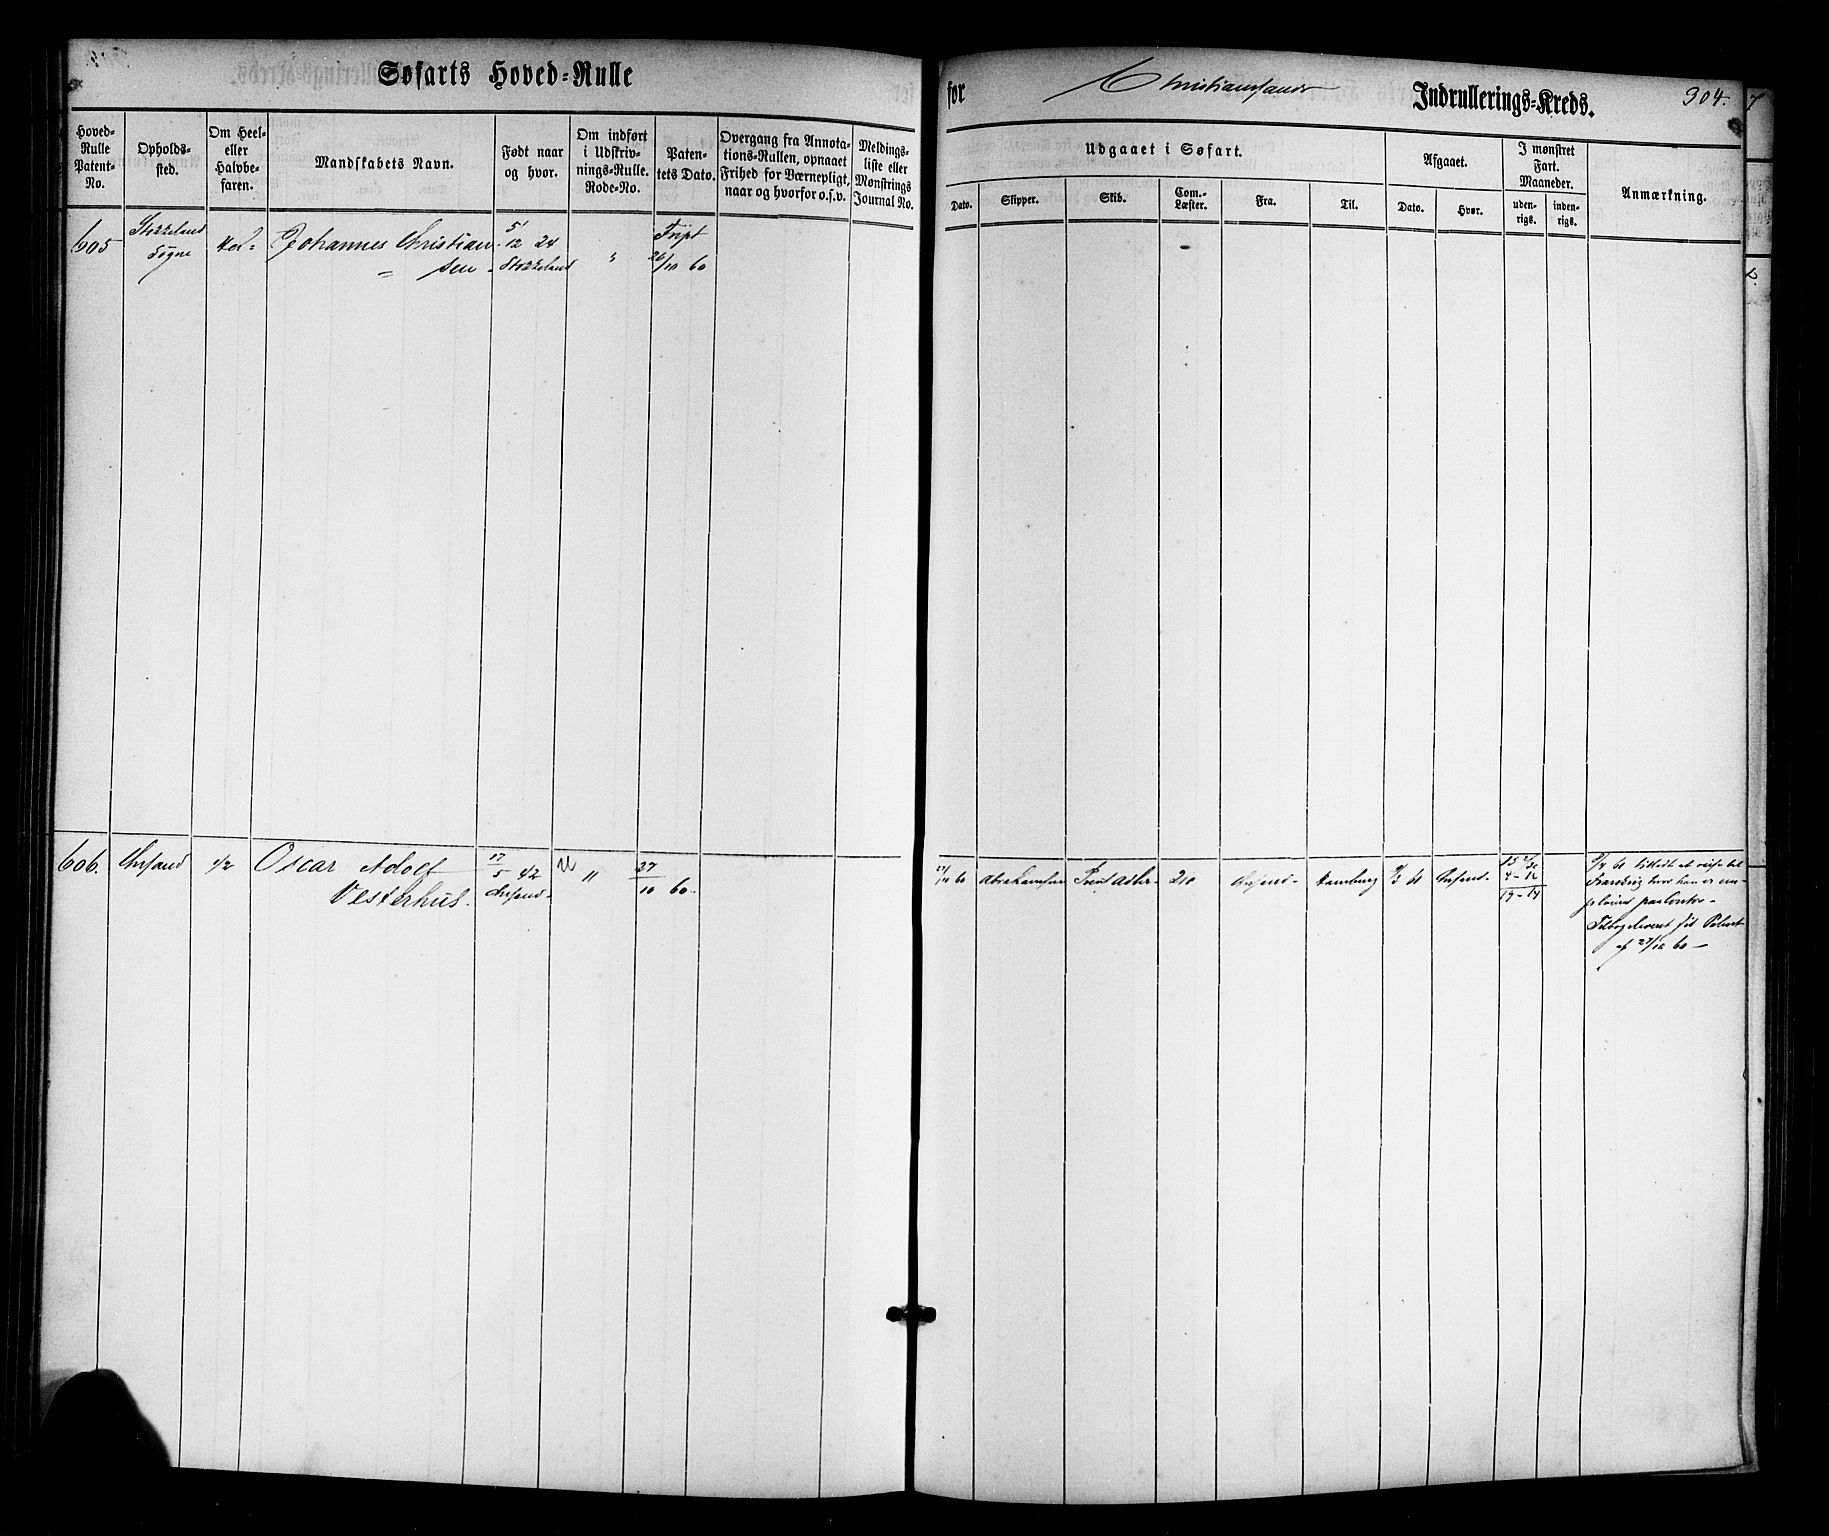 Søfarts Hoved-Rulle
for Christiansands Indrullerings-Kreds. 304.
Hoved-
Rulle
Patent-
No.
Opholds-
sted.
Om Heel-
eller
Halvbe-
faren.
Mandskabets Navn.
Født naar
og hvor.
Om indført
i Udskriv-
nings-Rulle.
Rode-No.
Paten-
tets Dato.
Overgang fra Annota-
tions-Rullen, opnaaet
Frihed for Værnepligt,
naar og hvorfor o.s.v.
Meldings-
liste eller
Mønstrings
Journal No.
Udgaaet i Søfart.
Dato.
Skipper.
Skib.
Com.-
Læster.
Fra.
Til.
Afgaaet.
Dato.
Hvor.
I mønstret
Fart.
Maaneder.
uden-
rigs.
inden-
rigs.
Anmærkning.
605
Stokkeland
Søgne
Hel-
Johannes Christian-
sen
5
12 24
Stokkeland
"
26/10 60
606.
Chrsand
1/2
Oscar Adolf
Vesterhus.
17
5 42
Chrsand-
"
27
10 60.
27/10 60
Abrahamsen
210
Chrsand-
Hamburg
Chrsand-
4-12
19-14
af 27/10 60 -